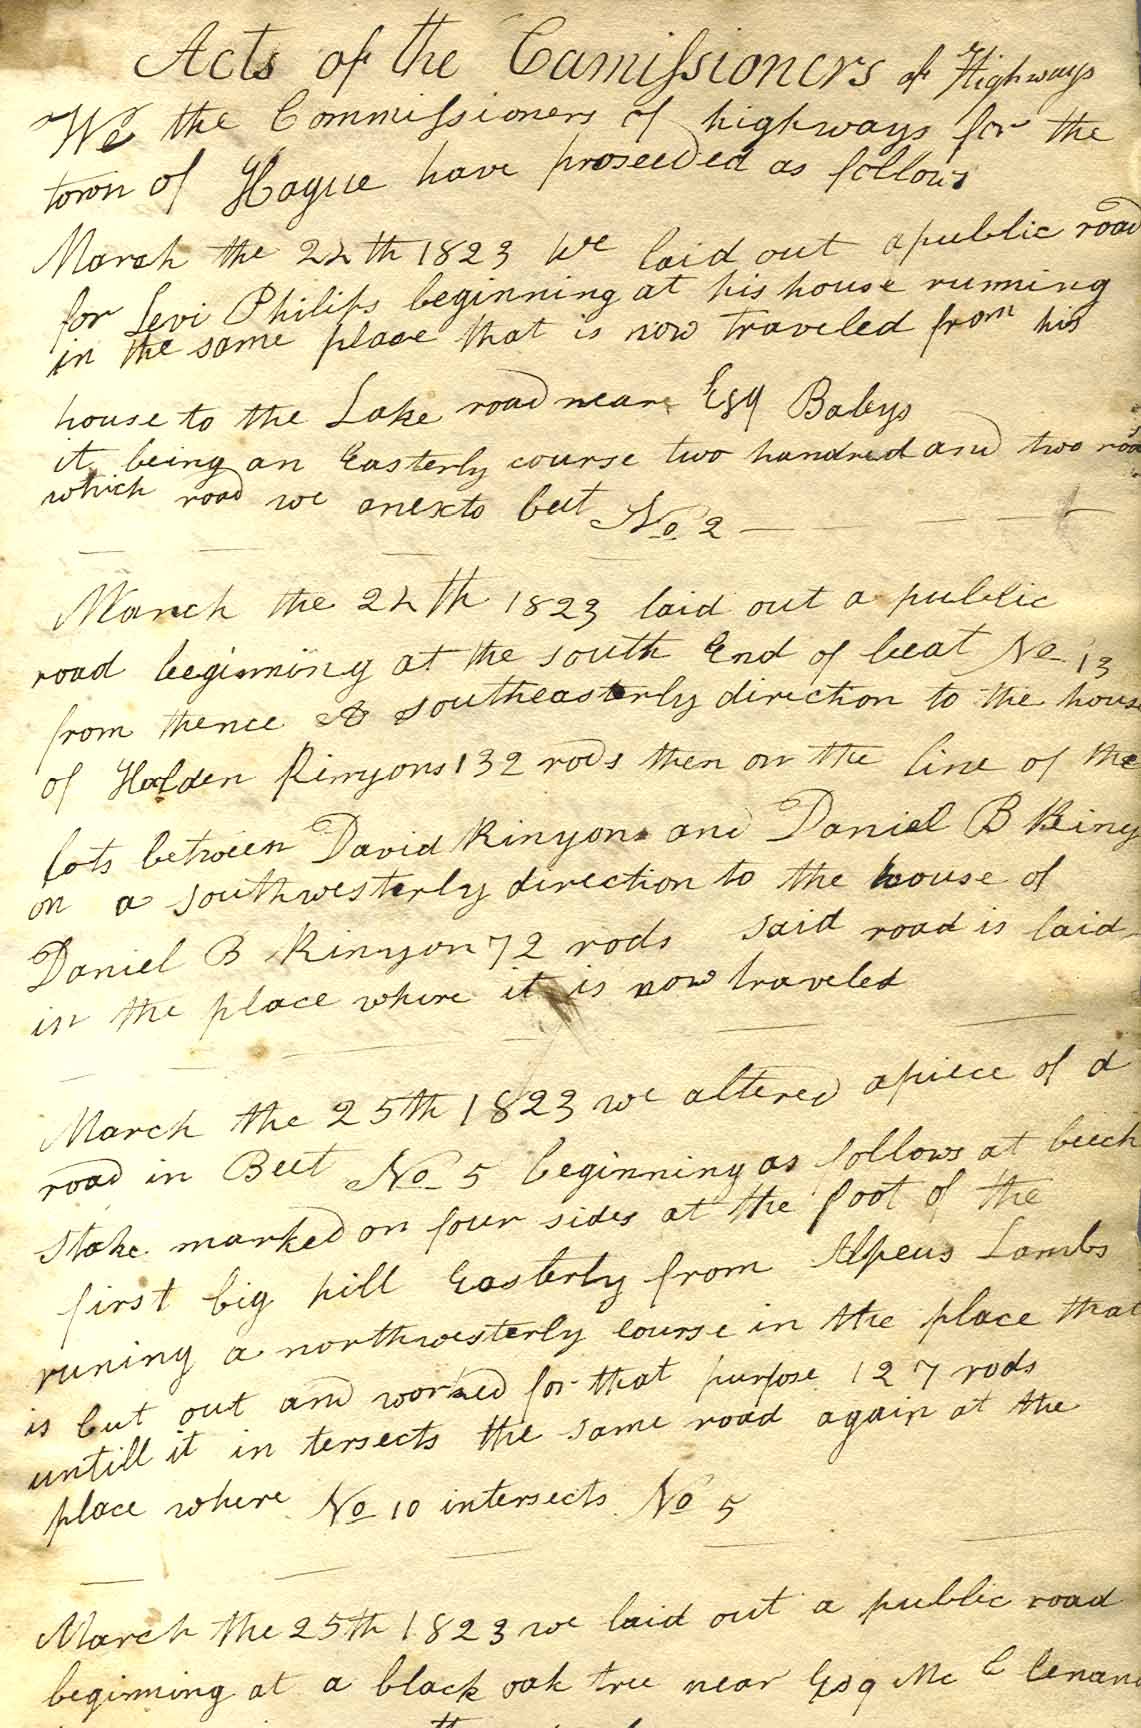 Acts of the Camissioners of Highways
We the Commissioners of highways for the
town of Hague have proseeded as follows
March the 24th 1823 we laid out a public road
for Levi Philips beginning at his house running
in the same place that is now traveled from his
house to the Lake road near Esq Babys
it being an Easterly course two hundred and two rod
which road we anex to beet No 2
March the 24th 1823 laid out a public
road beginning at the south End of beat No 13
from thence A southeasterly direction to the house
of Holden Kinyons 132 rods then on the line of the
lots between David Kinyons and Daniel B Kiny
on a southwesterly direction to the house of
Daniel B Kinyon 72 rods said road is laid
in the place where it is now traveled
March the 25th 1823 we altered a piece of a
road in Beet No 5 beginning as follows at beech
stake marked on four sides at the foot of the
first big hill Easterly from Alpeus Lambs
runing a northwesterly course in the place that
is cut out and worked for that purpose 127 rods
untill it in tersects the same road again at the
place where No 10 intersects No 5
March the 25th 1823 we laid out a public road
beginning at a black oak tree near Esq Mc Clenan